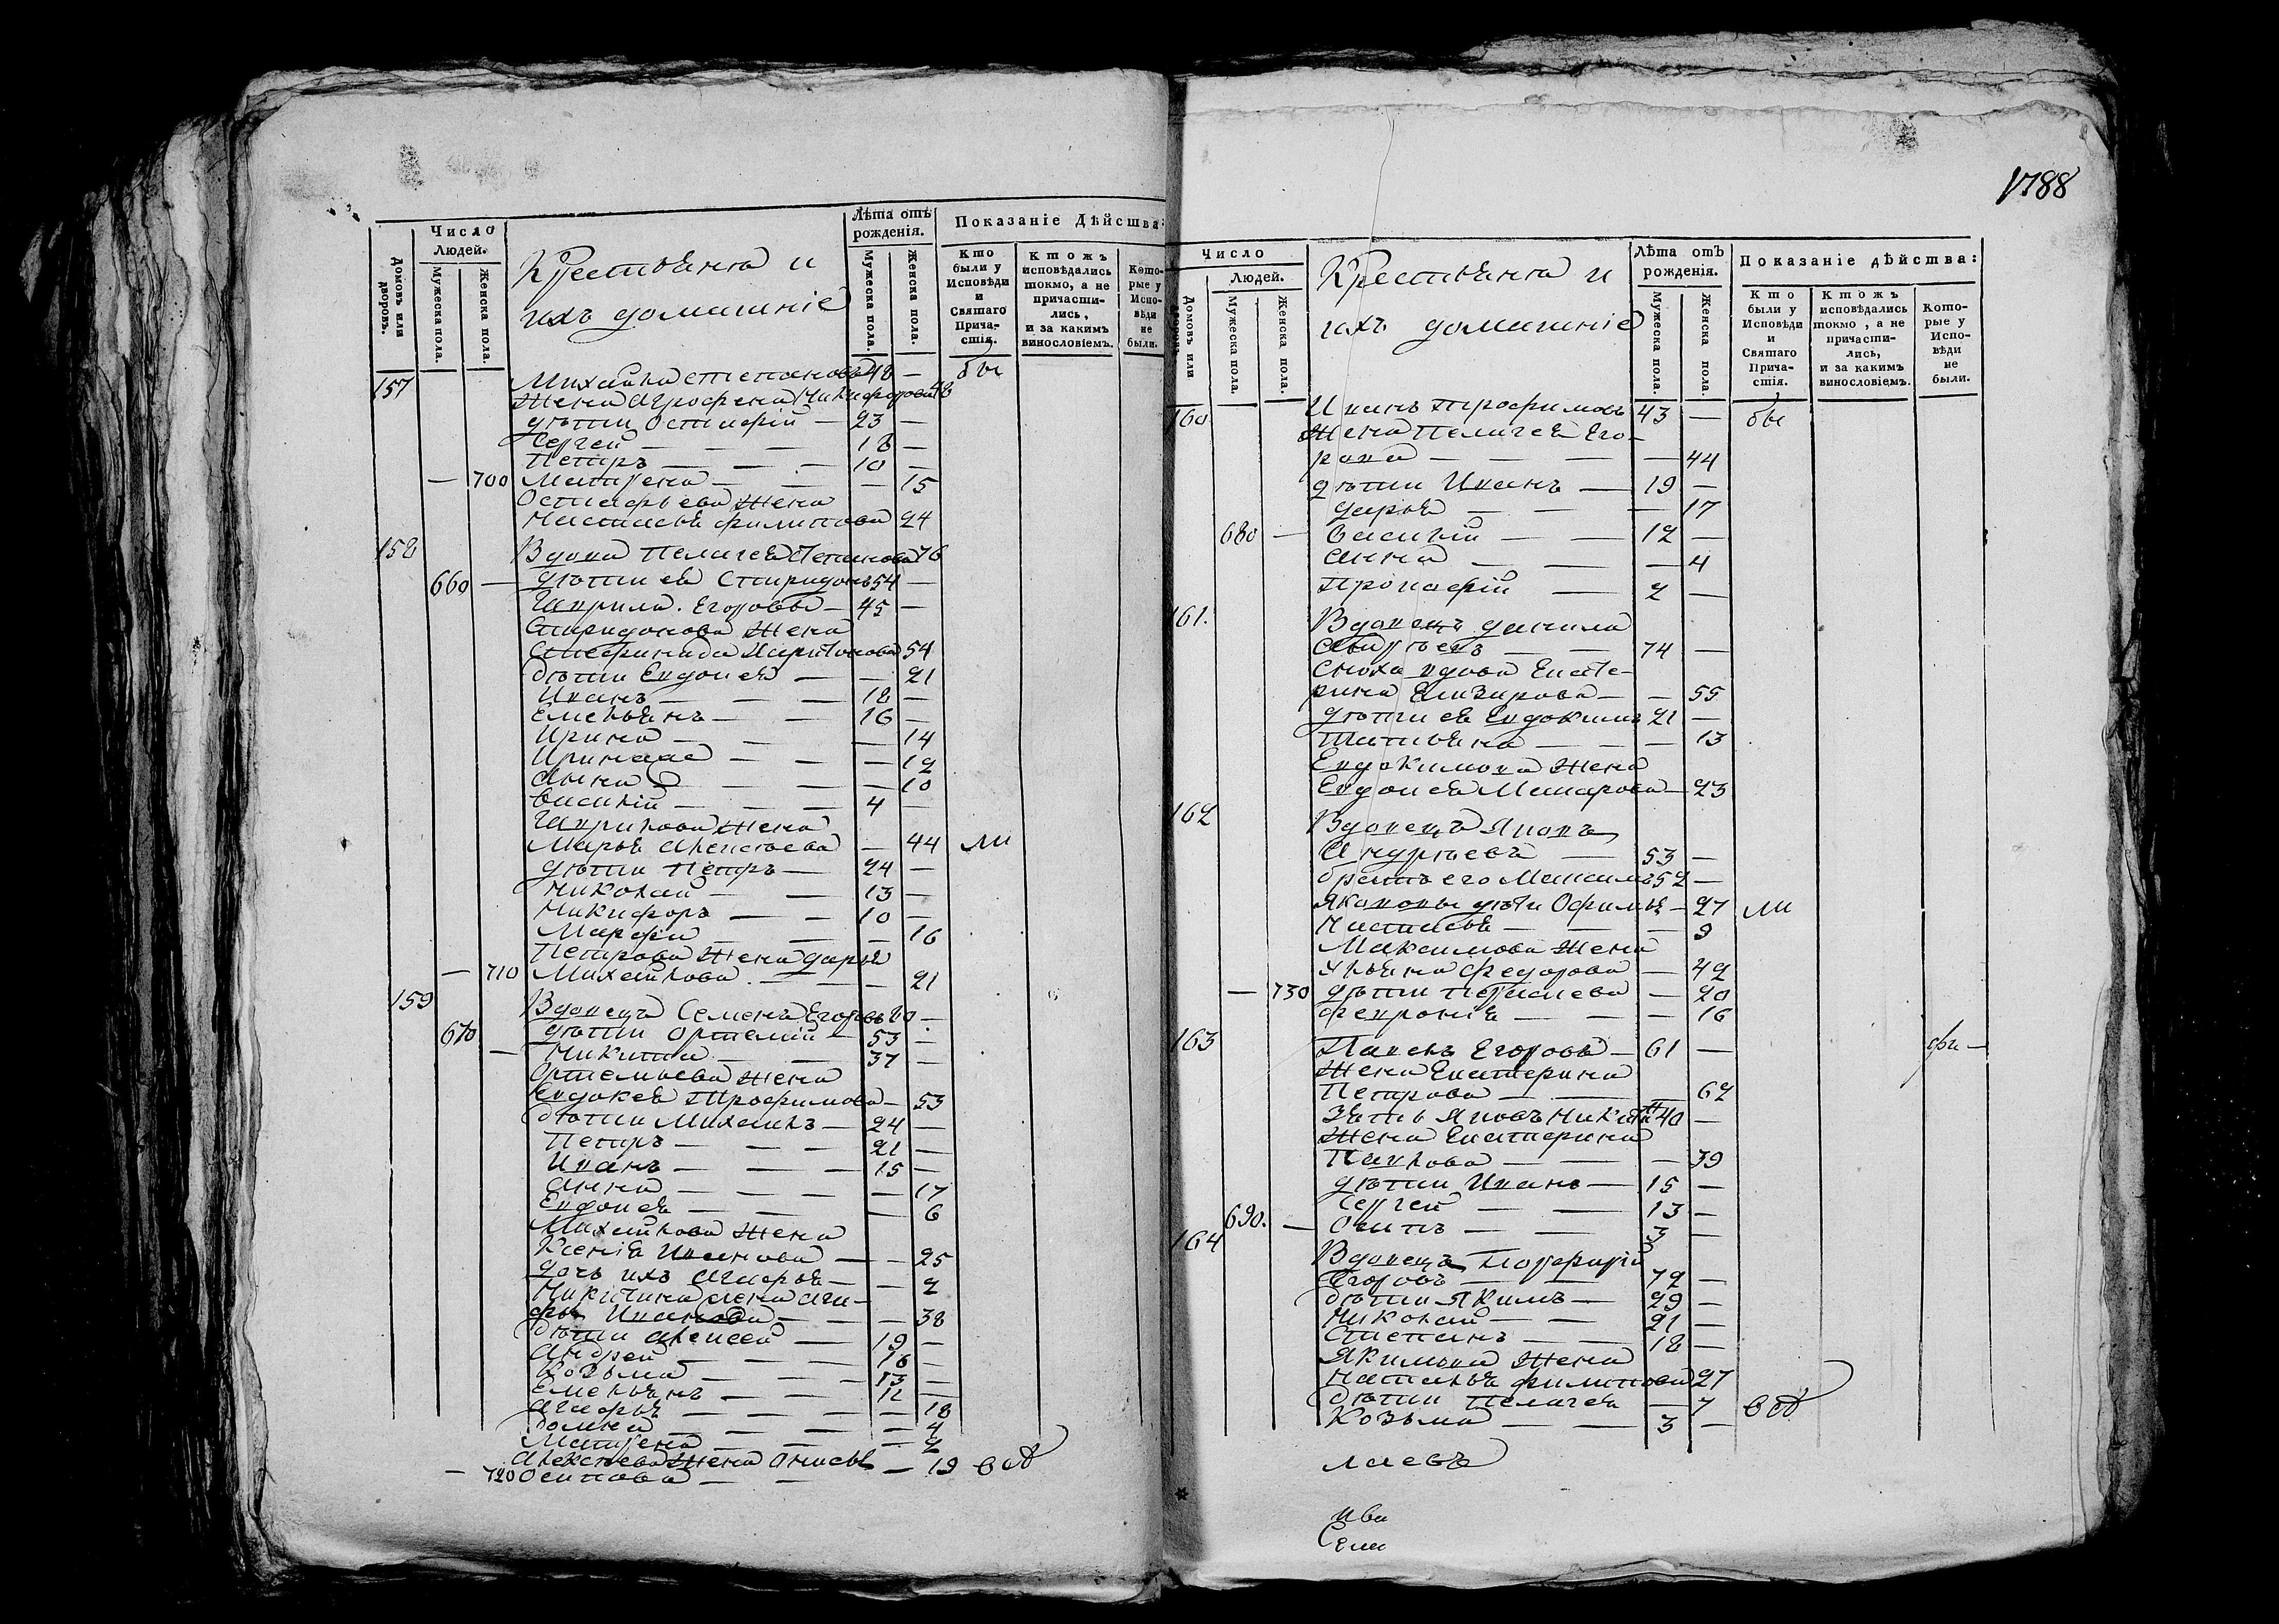 Число
Людей.
Домовъ или дворовъ.
Мужеска пола.
Женска пола.
Крестьяна и
ихъ домашніе
Лѣта отъ
рожденія.
Мужеска пола.
Женска пола.
Показаніе Дѣйства:
Кто
были у
Исповѣди
и
Святаго
Прича-
стія.
Ктожъ
исповѣдались
токмо, а не
причасти-
лись,
и за какимъ
винословіемъ.
Кото-
рые у
Испо-
вѣди
не
были.
157 Михайла Степановъ 48 — бы
Жена Агрофена Никифорова 48
дѣти Остафій — 23 —
Сергей — 18 —
Петръ — 10 —
— 700 Матрена — — 15
Остафьева Жена
Настасья филипова 24
158 Вдова Пелагея Степанова 76
660 — дѣти ея Спиридонъ 54 —
Гаврила Егоровы — 45 —
Спиридонова Жена
Степанида Харитонова 54
дѣти Евдокея — — 21
Иванъ — 18 —
Емельянъ — 16 —
Ирина — — 14
— 12
Анна — — 10
Василій — 4
Гаврилова Жена
Марья Алексѣева — 44 ли
дѣти Петръ — 24 —
Николай — 13 —
Никифоръ — 10 —
Марфа — — 16
Петрова Жена дарья
— 710 Михайлова — — 21
159 Вдовецъ Семенъ Егоровъ 80 —
670 дѣти Ортемій — 53 —
— Никита — 37 —
Ортемьева Жена
Евдокея Трофимова — 53
дѣти Михаилъ — 24 —
Петръ — 21 —
Иванъ — 15 —
Анна — — 17
Евдокея — — 6
Михайлова Жена
Ксенія Иванова — — 25
дочь ихъ Агафья — — 2
Никитина жена Ага-
фья Иванова — — 38
дѣти Алексей — 19 —
Андрей — 16 —
Козьма — 13 —
Емельянъ — 12 —
Агафья — — 18
домна — — 4
Матрена — — 2
Алексѣева Жена Анисья — 19
— 720 Осипова —
1788
Число
Людей.
Домовъ или дворовъ.
Мужеска пола.
Женска пола.
Крестьяна и
ихъ домашніе
Лѣта отъ
рожденія.
Мужеска пола.
Женска пола.
Показаніе дѣйства:
Кто
были у
Исповѣди
и
Святаго
Прича-
стія.
Ктожъ
исповѣдались
токмо, а не
причасти-
лись,
и за какимъ
винословіемъ.
Кото-
рые у
Испо-
вѣди
не
были.
160 Иванъ Трофимовъ 43 — бы
Жена Пелагея Его-
рова — — 44
дѣти Иванъ — 19 —
дарья — — 17
680 — Василій — 12 —
Анна — — 4
Прокофій — 2 —
161. Вдовецъ данила
74 —
Сноха вдова Екате-
рина Елизарова — — 55
дѣти ея Евдокимъ 21 —
Татьяна — — 13
Евдокимова Жена
Евдокея Макарова — 23
162 Вдовецъ Яковъ
Андрѣевъ — 53 —
братъ его Максимъ 52 —
Якововы дѣти Офимья — 27 ли
Настасья — — 9
Максимова Жена
Ульяна федорова — 49
— 730 дѣти — 20
февронія — — 16
163 Павелъ Егоровъ — 61 —
Жена Екатерина
Петрова — — 62
Зять Яковъ Никитинъ 40 —
Жена Екатерина
Павлова — — 39
дѣти Иванъ — 15 —
Сергей — 13 —
690. — Осипъ — 3 —
164 Вдовецъ Порфирій
Егоровъ — 72 —
дѣти Якимъ — 29 —
Николай — 21 —
Степанъ — 18 —
Якимова Жена
Наталья филипова 27
дѣти Пелагея — 7
Козьма — 3 —
лаевъ
ива
Сем